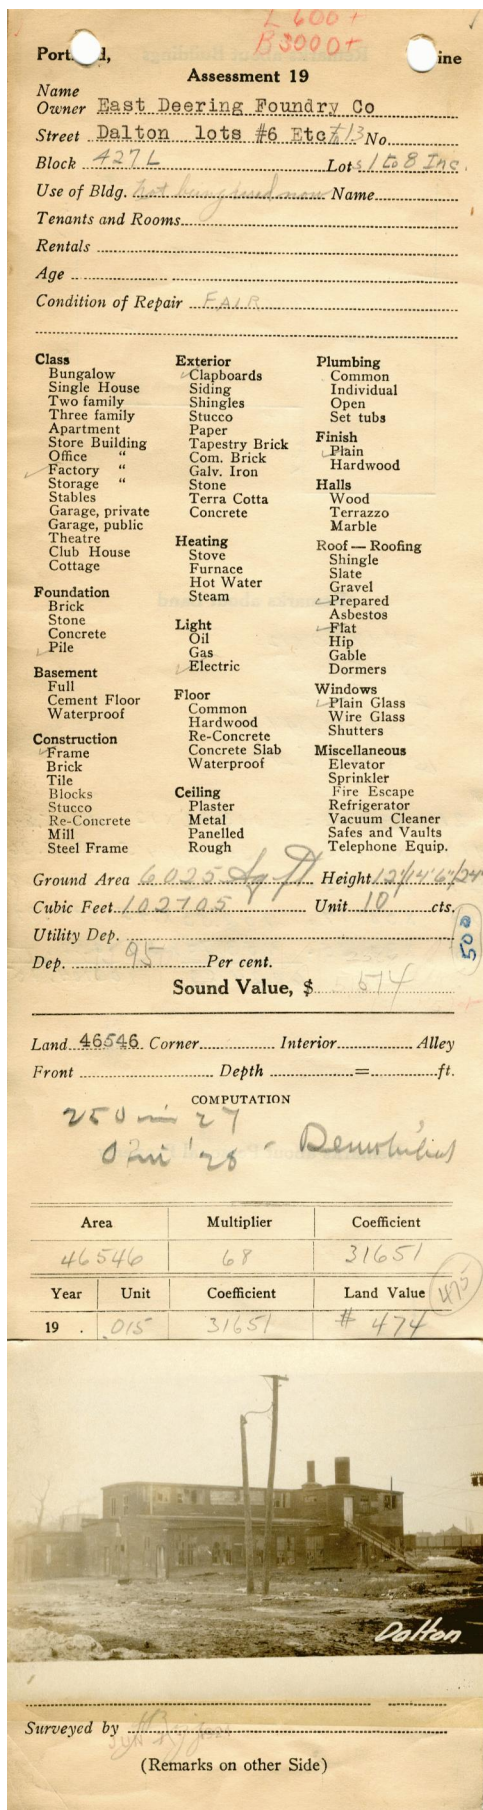 L 600+
B 3000+
Portland, ine
Assessment 19
Name
Owner East Deering Foundry Co
Street Dalton lots #6 Etc #13 No.
Block 427 L Lots 1 to 8 Inc.
Use of Bldg. Not being used now Name
Tenants and Rooms
Rentals
Age
Condition of Repair FAIR
Class
Bungalow
Single House
Two family
Three family
Apartment
Store Building
Office "
Factory "
Storage "
Stables
Garage, private
Garage, public
Theatre
Club House
Cottage
Foundation
Brick
Stone
Concrete
Pile
Basement
Full
Cement Floor
Waterproof
Construction
Frame
Brick
Tile
Blocks
Stucco
Re-Concrete
Mill
Steel Frame
Exterior
Clapboards
Siding
Shingles
Stucco
Paper
Tapestry Brick
Com. Brick
Galv. Iron
Stone
Terra Cotta
Concrete
Heating
Stove
Furnace
Hot Water
Steam
Light
Oil
Gas
Electric
Floor
Common
Hardwood
Re-Concrete
Concrete Slab
Waterproof
Ceiling
Plaster
Metal
Panelled
Rough
Plumbing
Common
Individual
Open
Set tubs
Finish
Plain
Hardwood
Halls
Wood
Terrazzo
Marble
Roof — Roofing
Shingle
Slate
Gravel
Prepared
Asbestos
Flat
Hip
Gable
Dormers
Windows
Plain Glass
Wire Glass
Shutters
Miscellaneous
Elevator
Sprinkler
Fire Escape
Refrigerator
Vacuum Cleaner
Safes and Vaults
Telephone Equip.
Ground Area 6025 Sq ft Height 12'/14'6"/24'
Cubic Feet 102705 Unit 10 cts.
Utility Dep.
500
Dep. 95 Per cent.
Sound Value, $ 514
Land 46546 Corner Interior Alley
Front Depth = ft.
COMPUTATION
250 in 27
0 in '28 - Demolished
Area Multiplier Coefficient
46546 68 31651
Year Unit Coefficient Land Value 475
19 . .015 31651 # 474
Dalton
Surveyed by
(Remarks on other Side)